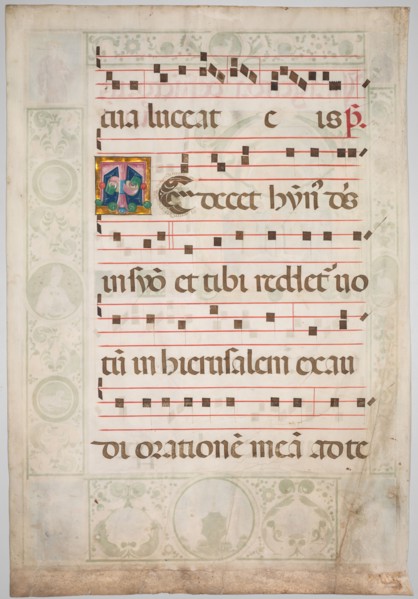 tua luceat e is ps.
Te decet hỹn̄ ds̄
in syō et tibi reddet̄ uo
tū in hierusalem exau
di orationē meā ad te